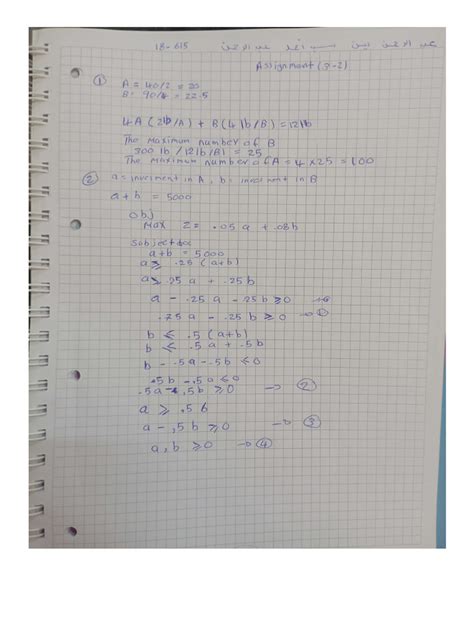 18-615 عبد الرحمن
Assignment (3-2)
① A = 40/2 = 20
B = 90/4 = 22.5
4A (2lb/A) + B (4lb/B) = 12lb
The maximum number of B
300 lb / 12lb/B) = 25
The maximum number of A = 4 x 25 = 100
② a = invesment in A, b = invesment in B
a + b = 5000
obj
max Z = .05 a + .08b
subject to
a+b = 5000
a ≥ .25 (a+b)
a ≥ .25a + .25b
a - .25a - .25b ≥ 0
.75a - .25b ≥ 0 → ①
b ≤ .5 (a+b)
b ≤ .5a + .5b
b - .5a - .5b ≤ 0
.5b - .5a ≤ 0
.5a - .5b ≥ 0 → ②
a ≥ .5b
a - .5b ≥ 0 → ③
a, b ≥ 0 → ④